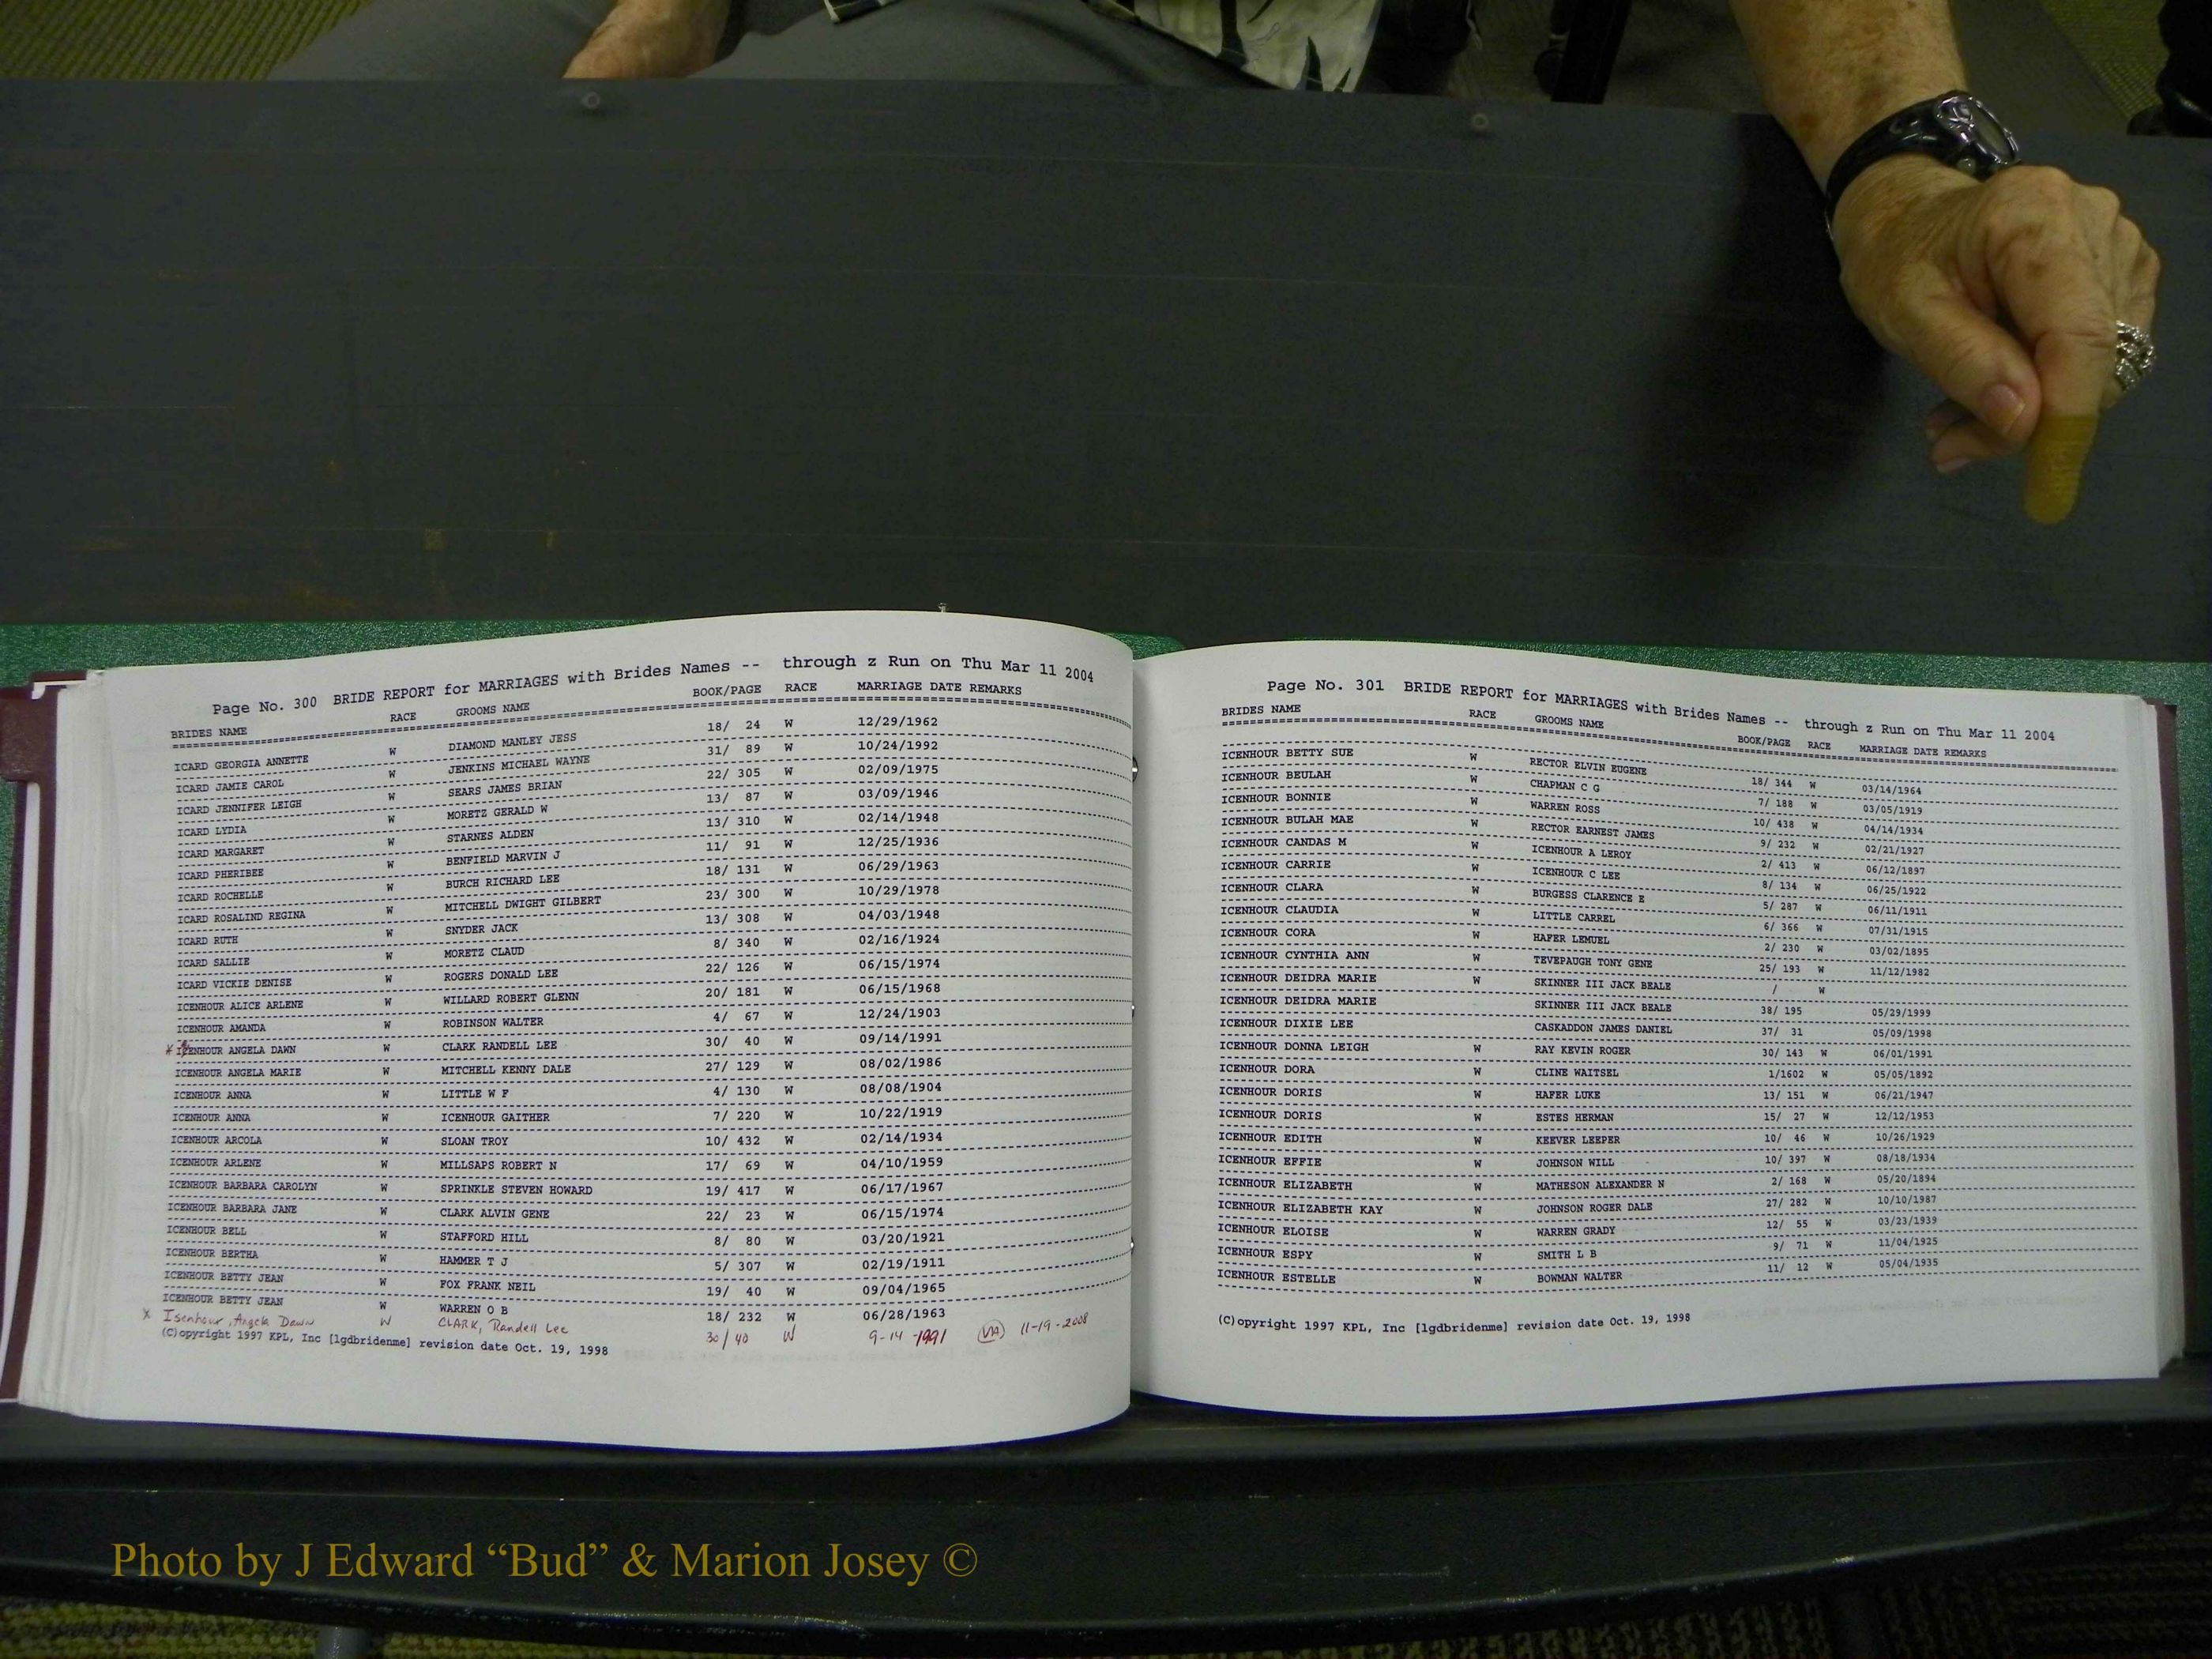 Page No. 300 BRIDE REPORT for MARRIAGES with Brides Names -- through z Run on Thu Mar 11 2004
BRIDES NAME RACE GROOMS NAME BOOK/PAGE RACE MARRIAGE DATE REMARKS
ICARD GEORGIA ANNETTE W DIAMOND MANLEY JESS 18/ 24 W 12/29/1962
ICARD JAMIE CAROL W JENKINS MICHAEL WAYNE 31/ 89 W 10/24/1992
ICARD JENNIFER LEIGH W SEARS JAMES BRIAN 22/ 305 W 02/09/1975
ICARD LYDIA W MORETZ GERALD W 13/ 87 W 03/09/1946
ICARD MARGARET W STARNES ALDEN 13/ 310 W 02/14/1948
ICARD PHERIBEE W BENFIELD MARVIN J 11/ 91 W 12/25/1936
ICARD ROCHELLE W BURCH RICHARD LEE 18/ 131 W 06/29/1963
ICARD ROSALIND REGINA W MITCHELL DWIGHT GILBERT 23/ 300 W 10/29/1978
ICARD RUTH W SNYDER JACK 13/ 308 W 04/03/1948
ICARD SALLIE W MORETZ CLAUD 8/ 340 W 02/16/1924
ICARD VICKIE DENISE W ROGERS DONALD LEE 22/ 126 W 06/15/1974
ICENHOUR ALICE ARLENE W WILLARD ROBERT GLENN 20/ 181 W 06/15/1968
ICENHOUR AMANDA W ROBINSON WALTER 4/ 67 W 12/24/1903
* ICENHOUR ANGELA DAWN W CLARK RANDELL LEE 30/ 40 W 09/14/1991
ICENHOUR ANGELA MARIE W MITCHELL KENNY DALE 27/ 129 W 08/02/1986
ICENHOUR ANNA W LITTLE W F 4/ 130 W 08/08/1904
ICENHOUR ANNA W ICENHOUR GAITHER 7/ 220 W 10/22/1919
ICENHOUR ARCOLA W SLOAN TROY 10/ 432 W 02/14/1934
ICENHOUR ARLENE W MILLSAPS ROBERT N 17/ 69 W 04/10/1959
ICENHOUR BARBARA CAROLYN W SPRINKLE STEVEN HOWARD 19/ 417 W 06/17/1967
ICENHOUR BARBARA JANE W CLARK ALVIN GENE 22/ 23 W 06/15/1974
ICENHOUR BELL W STAFFORD HILL 8/ 80 W 03/20/1921
ICENHOUR BERTHA W HAMMER T J 5/ 307 W 02/19/1911
ICENHOUR BETTY JEAN W FOX FRANK NEIL 19/ 40 W 09/04/1965
ICENHOUR BETTY JEAN W WARREN O B 18/ 232 W 06/28/1963
x Isenhour, Angela Dawn W CLARK, Randell Lee 30/40 W 9-14-1991 VA 11-19-2008
(C)opyright 1997 KPL, Inc [lgdbridenme] revision date Oct. 19, 1998
Page No. 301 BRIDE REPORT for MARRIAGES with Brides Names -- through z Run on Thu Mar 11 2004
BRIDES NAME RACE GROOMS NAME BOOK/PAGE RACE MARRIAGE DATE REMARKS
ICENHOUR BETTY SUE W RECTOR ELVIN EUGENE 18/ 344 W 03/14/1964
ICENHOUR BEULAH W CHAPMAN C G 7/ 188 W 03/05/1919
ICENHOUR BONNIE W WARREN ROSS 10/ 438 W 04/14/1934
ICENHOUR BULAH MAE W RECTOR EARNEST JAMES 9/ 232 W 02/21/1927
ICENHOUR CANDAS M W ICENHOUR A LEROY 2/ 413 W 06/12/1897
ICENHOUR CARRIE W ICENHOUR C LEE 8/ 134 W 06/25/1922
ICENHOUR CLARA W BURGESS CLARENCE E 5/ 287 W 06/11/1911
ICENHOUR CLAUDIA W LITTLE CARREL 6/ 366 W 07/31/1915
ICENHOUR CORA W HAFER LEMUEL 2/ 230 W 03/02/1895
ICENHOUR CYNTHIA ANN W TEVEPAUGH TONY GENE 25/ 193 W 11/12/1982
ICENHOUR DEIDRA MARIE W SKINNER III JACK BEALE / W
ICENHOUR DEIDRA MARIE SKINNER III JACK BEALE 38/ 195 05/29/1999
ICENHOUR DIXIE LEE CASKADDON JAMES DANIEL 37/ 31 05/09/1998
ICENHOUR DONNA LEIGH W RAY KEVIN ROGER 30/ 143 W 06/01/1991
ICENHOUR DORA W CLINE WAITSEL 1/1602 W 05/05/1892
ICENHOUR DORIS W HAFER LUKE 13/ 151 W 06/21/1947
ICENHOUR DORIS W ESTES HERMAN 15/ 27 W 12/12/1953
ICENHOUR EDITH W KEEVER LEEPER 10/ 46 W 10/26/1929
ICENHOUR EFFIE W JOHNSON WILL 10/ 397 W 08/18/1934
ICENHOUR ELIZABETH W MATHESON ALEXANDER N 2/ 168 W 05/20/1894
ICENHOUR ELIZABETH KAY W JOHNSON ROGER DALE 27/ 282 W 10/10/1987
ICENHOUR ELOISE W WARREN GRADY 12/ 55 W 03/23/1939
ICENHOUR ESPY W SMITH L B 9/ 71 W 11/04/1925
ICENHOUR ESTELLE W BOWMAN WALTER 11/ 12 W 05/04/1935
(C)opyright 1997 KPL, Inc [lgdbridenme] revision date Oct. 19, 1998
Photo by J Edward “Bud” & Marion Josey ©